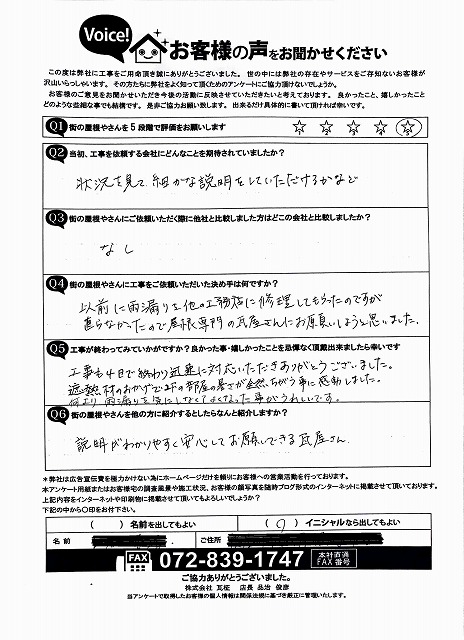 Voice!
お客様の声をお聞かせください
この度は弊社に工事をご用命頂き誠にありがとうございました。世の中には弊社の存在やサービスをご存知ないお客様が
沢山いらっしゃいます。その方たちに弊社をよく知って頂くためのアンケートにご協力頂けないでしょうか。
お客様のご意見をお聞かせいただき今後の活動に反映させていただきたいと考えております。良かったこと、嬉しかったこと
どのような些細な事でも結構です。是非ご協力お願い致します。出来るだけ具体的に書いて頂ければ幸いです。
Q1 街の屋根やさんを5段階で評価をお願いします ☆1 ☆2 ☆3 ☆4 ☆5
Q2 当初、工事を依頼する会社にどんなことを期待されていましたか?
状況を見て、細かな説明をしていただけるかなど
Q3 街の屋根やさんにご依頼いただく際に他社と比較しました方はどこの会社と比較しましたか?
なし
Q4 街の屋根やさんに工事をご依頼いただいた決め手は何ですか?
以前に雨漏りを他の工務店に修理してもらったのですが
直らなかったので屋根専門の瓦屋さんにお願いしようと思いました。
Q5 工事が終わってみていかがですか?良かった事・嬉しかったことを忌憚なく頂戴出来ましたら幸いです
工事も4日で終わり迅速に対応いただきありがとうございました。
遮熱材のおかげで2Fの部屋の暑さが全然ちがう事に感動しました。
何より雨漏りを気にしなくてよくなった事がうれしいです。
Q6 街の屋根やさんを他の方に紹介するとしたらなんと紹介しますか?
説明がわかりやすく安心してお願いできる瓦屋さん
*弊社は広告宣伝費を極力かけない為にホームページだけを頼りにお客様への営業活動を行っております。
本アンケート用紙またはお客様宅の調査風景や施工状況、お客様の顔写真を随時ブログ形式のインターネットに掲載させて頂いております。
上記内容をインターネットや印刷物に掲載させて頂いてもよろしいでしょうか?
下記の中から〇印をお付下さい。
( ) 名前を出してもよい (○) イニシャルなら出してもよい
名前 ご住所
FAX 072-839-1747 本社直通 FAX番号
ご協力ありがとうございました。
株式会社 瓦柾 店長 品治 俊彦
当アンケートで取得したお客様の個人情報は関係法規に基づき厳正に管理いたします。